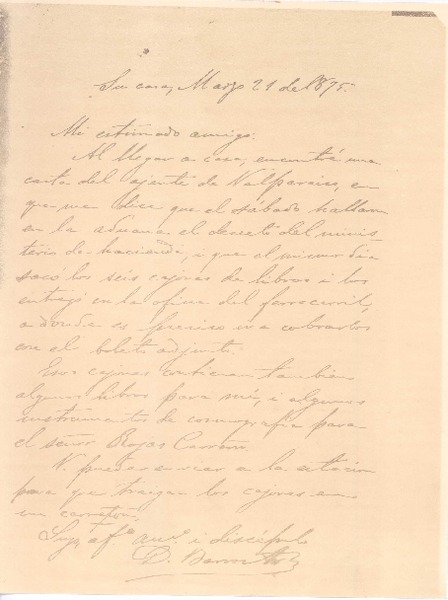 Su casa, Marzo 21 de 1875.
Mi estimado amigo:
Al llegar a casa, encontré una
carta del ajente de Valparaiso, en
que me dice que el sábado hallam
en la aduana el decreto del minis
terio de hacienda, i que el mismo dia
sacó los seis cajones de libros i los
entregó en la oficina del ferrocarril,
a donde es preciso ir a cobrarlos
con el boleto adjunto.
Esos cajones contienen tambien
algunos libros para mí, i algunos
instrumentos de cosmografía para
el señor Rojas Carreño.
V. puede enviar a la estacion
para que traigan los cajones en
un carreton.
Suyo afº amº i discípulo
D. Barros